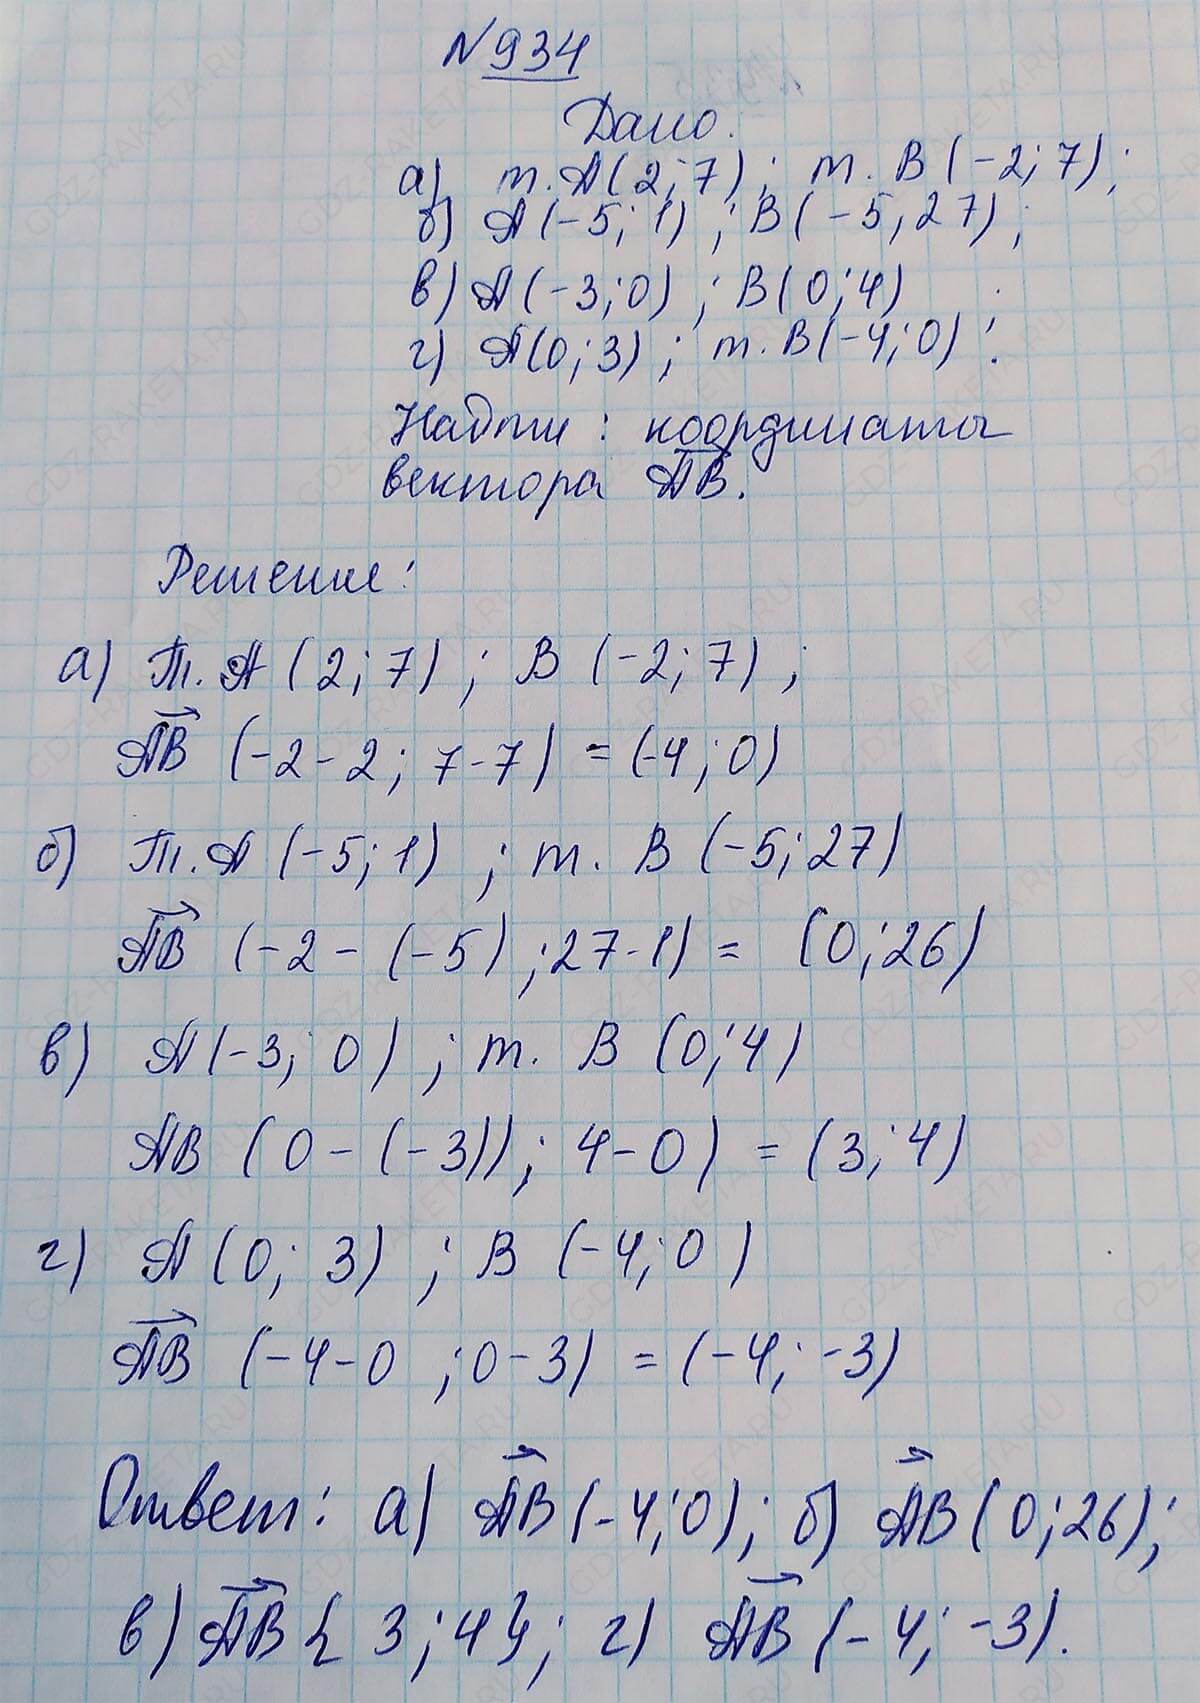 №934
Дано.
а) т. А(2;7); т. В(-2;7);
б) А(-5;1); В(-5;27);
в) А(-3;0); В(0;4)
г) А(0;3); т. В(-4;0).
Найти: координаты
вектора АВ.
Решение:
а) Т. А (2;7); В (-2;7);
АВ (-2-2; 7-7) = (-4;0)
б) Т. А (-5;1); т. В (-5;27)
АВ (-2-(-5); 27-1) = (0;26)
в) А(-3; 0); т. В (0;4)
АВ (0-(-3)); 4-0) = (3;4)
г) А (0; 3); В (-4;0)
АВ (-4-0; 0-3) = (-4;-3)
Ответ: а) АВ (-4;0); б) АВ (0;26);
в) АВ { 3;4}; г) АВ (-4; -3).